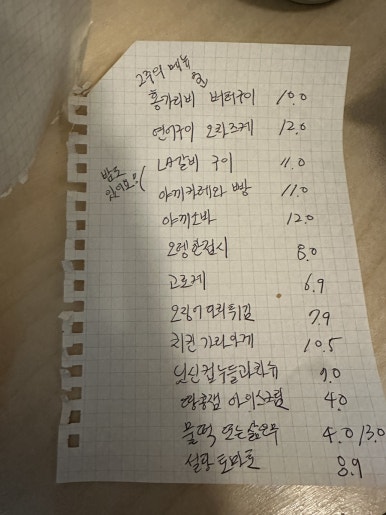 2주의 메뉴
홍가리비 버터구이 10.0
연어구이 오차즈케 12.0
LA갈비 구이 11.0
밥도
있어요!(
야끼카레와 빵 11.0
야끼소바 12.0
오뎅한접시 8.0
고로케 6.9
오징어 튀김 7.9
치킨 가라아게 10.5
닛신컵누들과 9.0
땅콩잼 아이스크림 4.0
물떡 또는 삶은무 4.0/3.0
설탕토마토 8.9